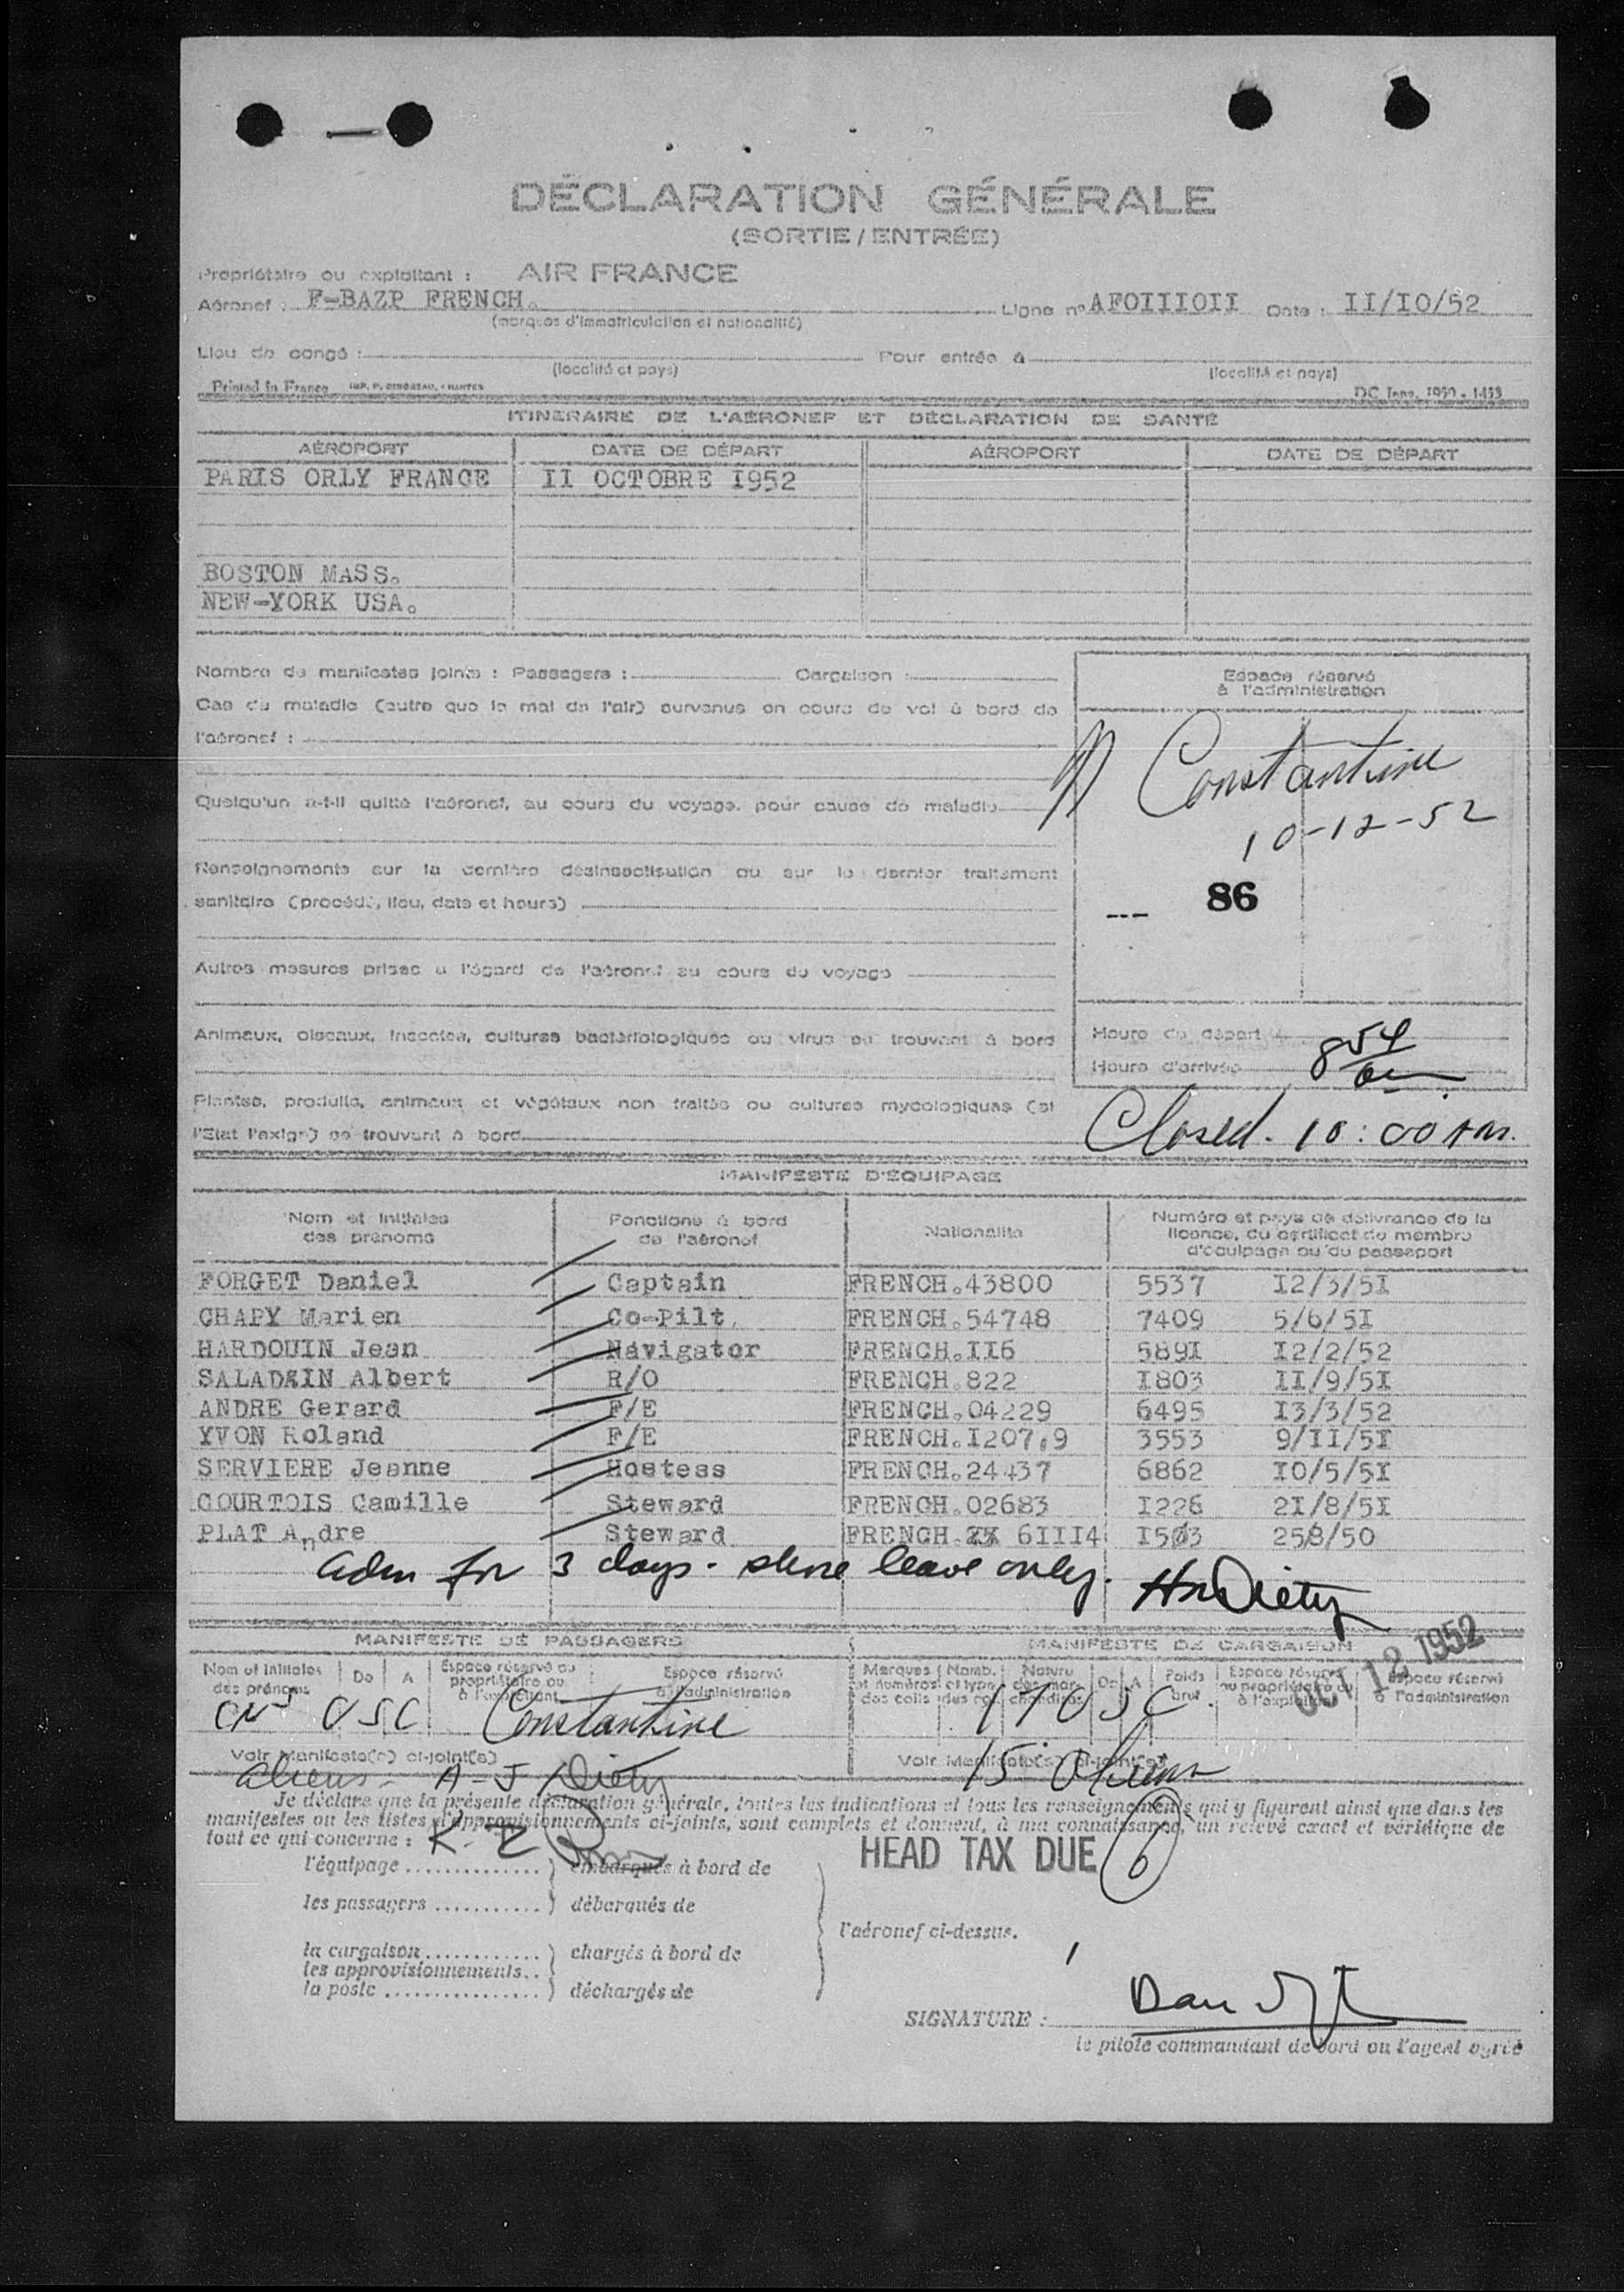 DÉCLARATION GÉNÉRALE
(SORTIE / ENTRÉE)
Propriétaire ou exploitant : AIR FRANCE
Aéronef : F-BAZP FRENCH. Ligne n° AFOIIIOII Date : II/IO/52
(marques d'immatriculation et nationalité)
Lieu de congé : Pour entrée à
(localité et pays) (localité et pays)
Printed in France
ITINÉRAIRE DE L'AÉRONEF ET DÉCLARATION DE SANTÉ
AÉROPORT DATE DE DÉPART AÉROPORT DATE DE DÉPART
PARIS ORLY FRANCE II OCTOBRE I952
BOSTON MASS.
NEW-YORK USA.
Nombre de manifestes joints : Passagers : Cargaison :
Espace réservé
à l'administration
Cas de maladie (autre que le mal de l'air) survenus en cours de vol à bord de
l'aéronef :
Constantine
10-12-52
Quelqu'un a-t-il quitté l'aéronef, au cours du voyage, pour cause de maladie
Renseignements sur la dernière désinsectisation ou sur le dernier traitement
sanitaire (procédé, lieu, date et heure)
--- 86
Autres mesures prises à l'égard de l'aéronef au cours du voyage
Animaux, oiseaux, insectes, cultures bactériologiques ou virus se trouvant à bord
Heure du départ
Heure d'arrivée 8 54
Plantes, produits, animaux et végétaux non traités ou cultures mycologiques (si
l'Etat l'exige) se trouvant à bord
Closed. 10:00 Am.
MANIFESTE D'ÉQUIPAGE
Nom et initiales des prénoms Fonctions à bord de l'aéronef Nationalité Numéro et pays de délivrance de la licence, du certificat de membre d'équipage ou du passeport
FORGET Daniel Captain FRENCH.43800 5537 I2/3/5I
CHAPY Marien Co-Pilt. FRENCH.54748 7409 5/6/5I
HARDOUIN Jean Navigator FRENCH.II6 589I I2/2/52
SALADAIN Albert R/O FRENCH.822 I803 II/9/5I
ANDRE Gerard F/E FRENCH.04229 6495 I3/3/52
YVON Roland F/E FRENCH.I207,9 3553 9/II/5I
SERVIERE Jeanne Hostess FRENCH.24437 6862 IO/5/5I
COURTOIS Camille Steward FRENCH.02683 I226 2I/8/5I
PLAT Andre Steward FRENCH. 6III4 I503 258/50
Adm for 3 days. shore leave only.
MANIFESTE DE PASSAGERS MANIFESTE DE CARGAISON
12 1952
Nom et initiales des prénoms De A Espace réservé au propriétaire ou à l'exploitant Espace réservé à l'administration
Marques et numéros des colis Nomb. et type des col. Nature des marchandises De A Poids brut Espace réservé au propriétaire ou à l'exploitant Espace réservé à l'administration
USC Constantine 17 USC
Voir Manifeste(s) ci-joint(s) Voir Manifeste(s) ci-joint(s)
Aliens - A-J 15 Aliens
Je déclare que la présente déclaration générale, toutes les indications et tous les renseignements qui y figurent ainsi que dans les
manifestes ou les listes d'approvisionnements ci-joints, sont complets et donnent, à ma connaissance, un relevé exact et véridique de
tout ce qui concerne :
K-Z
HEAD TAX DUE 6
l'équipage embarqués à bord de
les passagers débarqués de
l'aéronef ci-dessus.
la cargaison chargés à bord de
les approvisionnements..
la poste déchargés de
SIGNATURE :
le pilote commandant de bord ou l'agent agréé